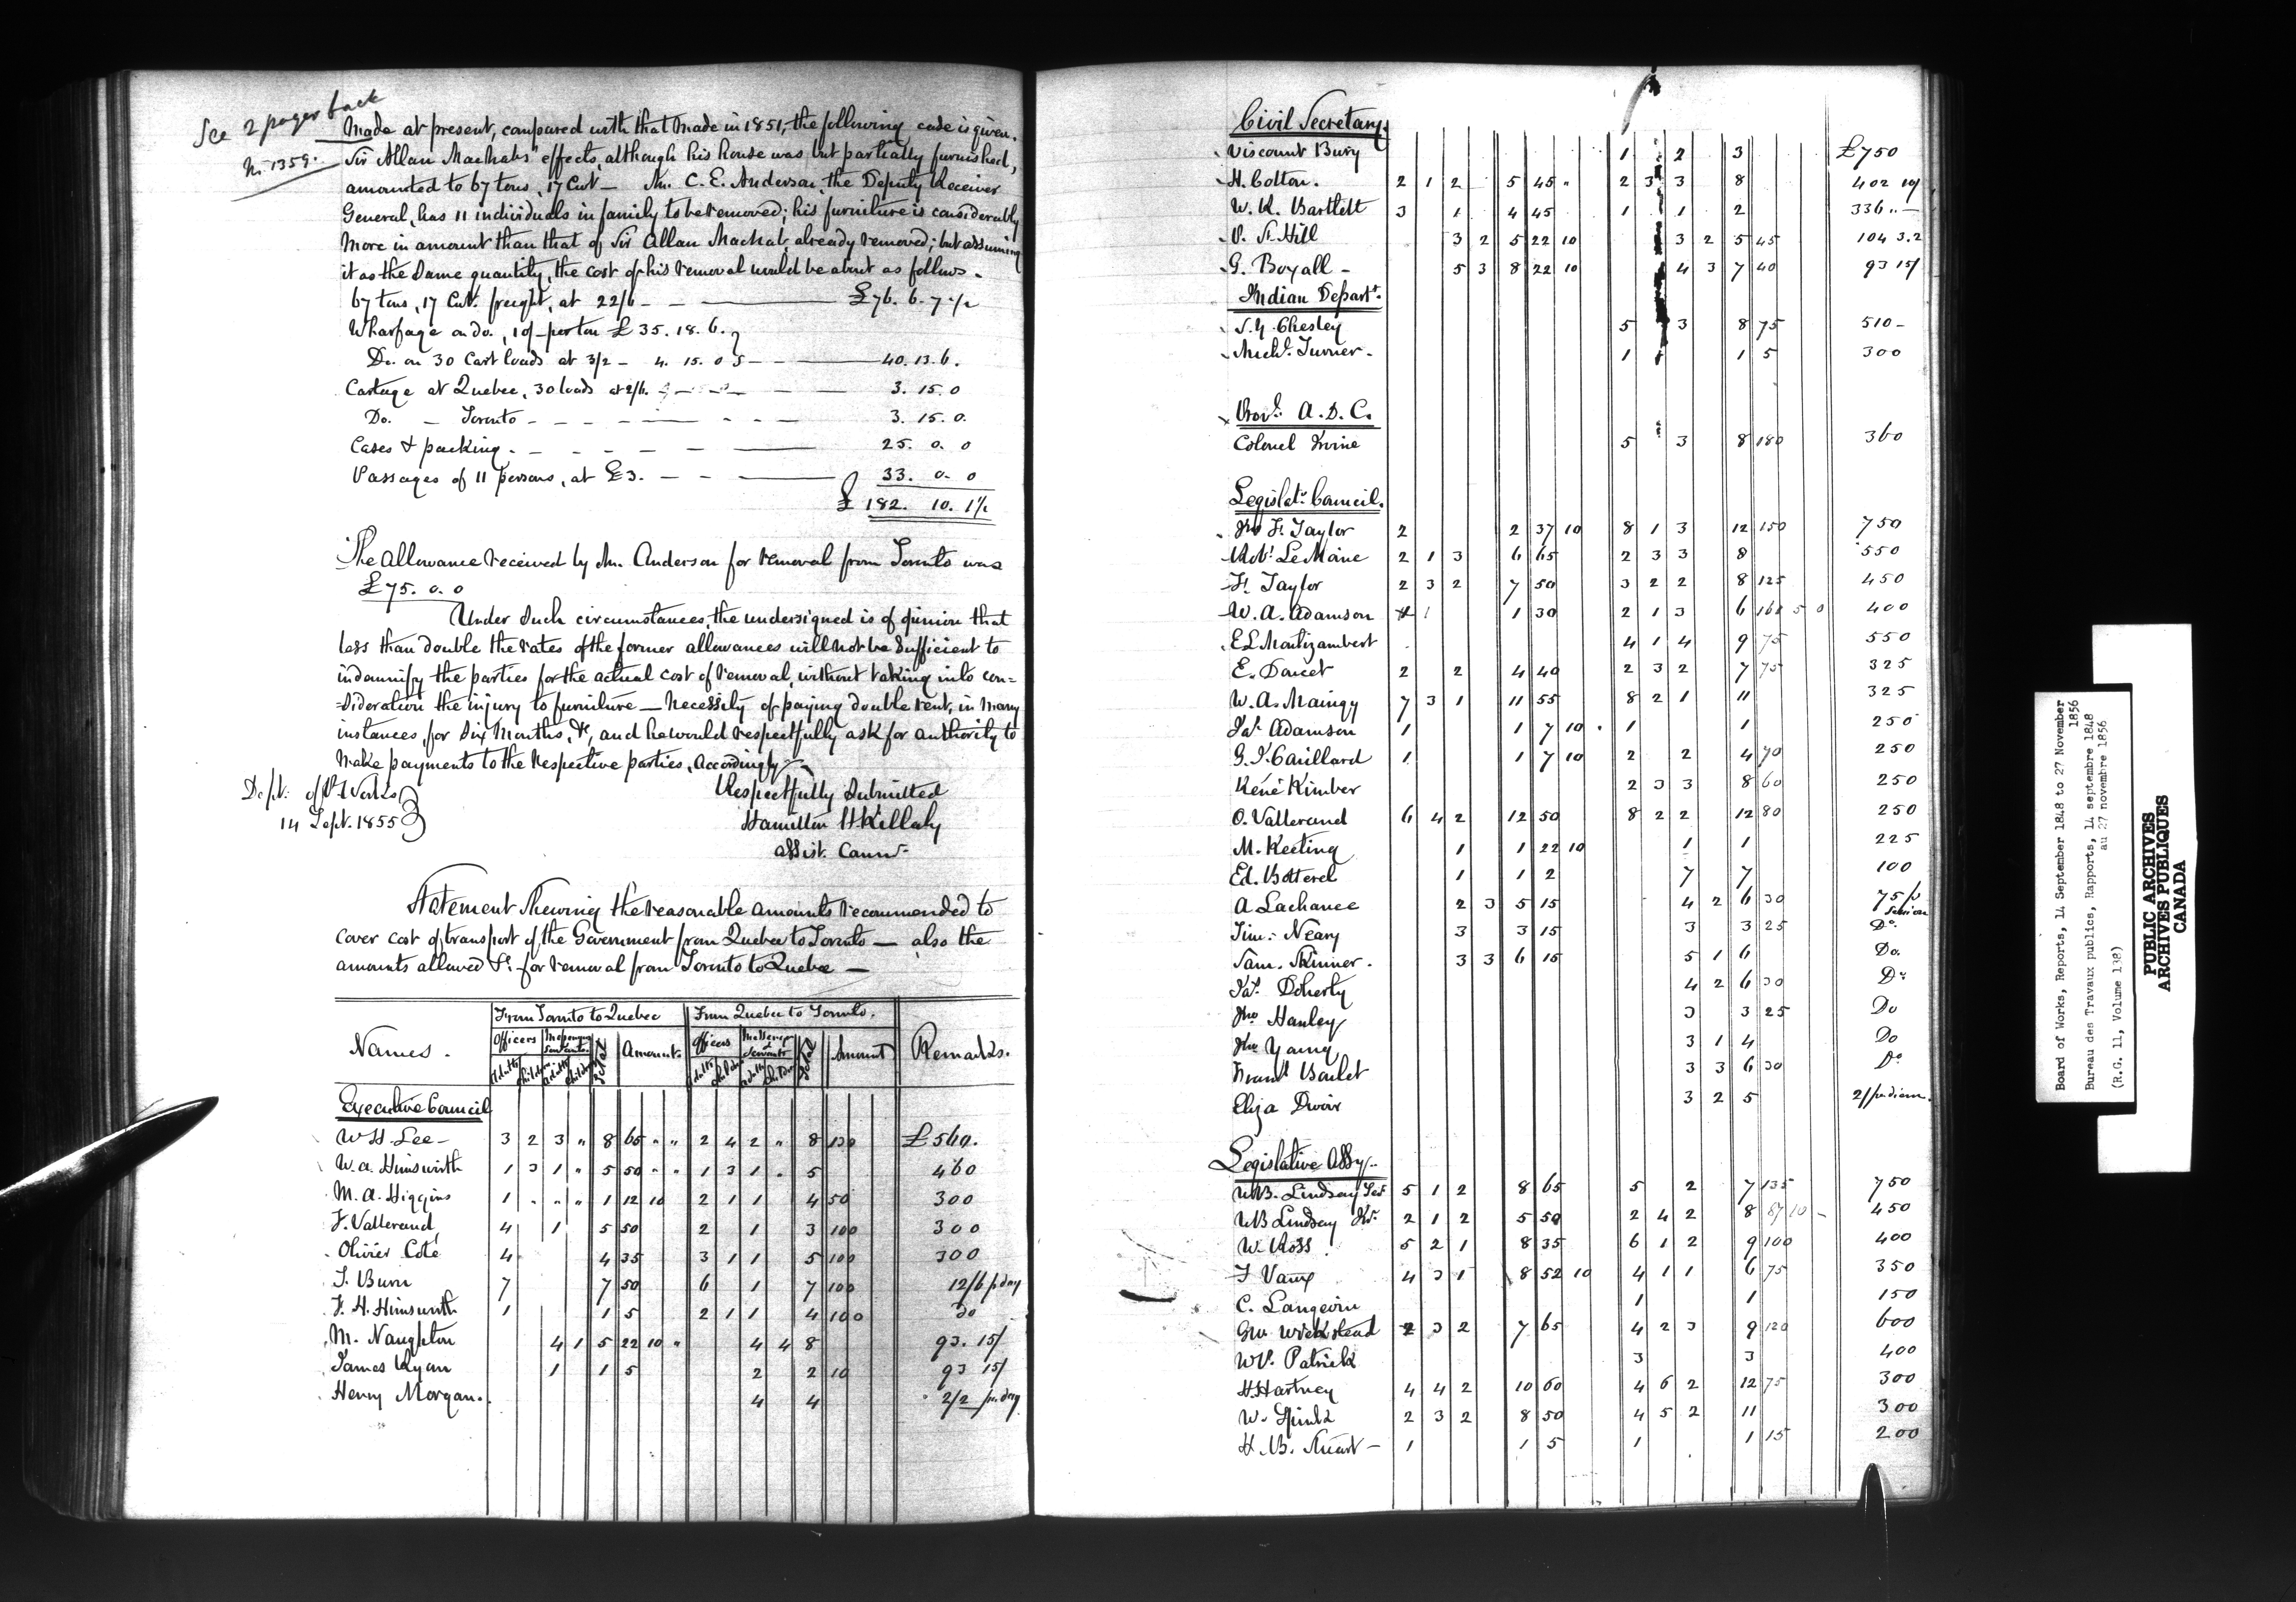 See 2 pages back
No. 1359.
Made at present, compared with that made in 1851, the following case is given.
Sir Allan Macnab's effects, although his house was but partially furnished,
amounted to 67 tons, 17 Cwt — Mr. C. E. Anderson, the Deputy Receiver
General, has 11 individuals in family to be removed; his furniture is considerably
more in amount than that of Sir Allan Macnab already removed; but assuming
it as the same quantity, the cost of his removal would be about as follows.
67 tons, 17 Cwt. freight, at 22/6 — — £76. 6. 7 1/2
Wharfage on do., per ton £35. 18. 6.
Do. on 30 Cart loads at 3/2 — 4. 15. 0 — 40. 13. 6.
Cartage at Quebec, 30 loads at 2/6. 3. 15. 0
Do. — Toronto — 3. 15. 0.
Cases & packing — 25. 0. 0
Passages of 11 persons, at £3. — 33. 0. 0
£ 182. 10. 1 1/2
The allowance received by Mr. Anderson for removal from Toronto was
£75. 0. 0
Under such circumstances, the undersigned is of opinion that
less than double the rates of the former allowances will not be sufficient to
indemnify the parties for the actual cost of removal, without taking into con=
=sideration the injury to furniture — necessity of paying double rent, in many
instances, for six months, &c, and he would respectfully ask for authority to
make payments to the respective parties, accordingly
Respectfully submitted
Hamilton H. Killaly
assist. Commr.
Dept. of P. Works
14 Sept. 1855
Statement shewing the reasonable amounts recommended to
cover cost of transport of the Government from Quebec to Toronto — also the
amounts allowed for removal from Toronto to Quebec —
Names. From Toronto to Quebec From Quebec to Toronto. Remarks.
Officers Messengers Servants. Total Amount. Officers Messengers & Servants Total Amount
Adults Children Adults Children Adults Children Adults Children
Executive Council
W H Lee — 3 2 3 " 8 65 " " 2 4 2 " 8 120 £560.
W. A. Himsworth 1 3 1 " 5 50 " " 1 3 1 " 5 460
M. A. Higgins 1 " " " 1 12 10 2 1 1 4 50 300
F. Vallerand 4 1 5 50 2 1 3 100 300
Olivier Coté 4 4 35 3 1 1 5 100 300
T. Burn 7 7 50 6 1 7 100 12/6 p day
F. H. Himsworth 1 1 5 2 1 1 4 100 do
M. Naughton 4 1 5 22 10 " 4 4 8 93. 15/
James Ryan 1 1 5 2 2 10 93 15/
Henry Morgan. 4 4 2/2 pr. day
Civil Secretary.
Viscount Bury 1 2 3 £750
H. Cotton. 2 1 2 5 45 " 2 3 3 8 402 10/
W. R. Bartlett 3 1 4 45 1 1 2 336 " —
P. St. Hill 3 2 5 22 10 3 2 5 45 104 3.2
G. Boxall — 5 3 8 22 10 4 3 7 40 93 15/
Indian Depart.
S. Y. Chesley 5 3 8 75 510 —
Michl. Turner. 1 1 5 300
Provl. A. D. C.
Colonel Irvine 5 3 8 180 360
Legislat. Council.
Jno F. Taylor 2 2 37 10 8 1 3 12 150 750
Robt. LeMoine 2 1 3 6 65 2 3 3 8 550
F. Taylor 2 3 2 7 50 3 2 2 8 125 450
W. A. Adamson 1 1 30 2 1 3 6 168 5 0 400
E L Montizambert 4 1 4 9 75 550
E. Doucet 2 2 4 40 2 3 2 7 75 325
W. A. Maingy 7 3 1 11 55 8 2 1 11 325
Jas. Adamson 1 1 7 10 1 1 250
G. J. Caillard 1 1 7 10 2 2 4 70 250
René Kimber 2 3 3 8 60 250
O. Vallerand 6 4 2 12 50 8 2 2 12 80 250
M. Keating 1 1 22 10 1 1 225
Ed. Botterel 1 1 2 7 7 100
A Lachance 2 3 5 15 4 2 6 30 75 p Session
Tim: Neary 3 3 15 3 3 25 Do.
Sam. Skinner. 3 3 6 15 5 1 6 Do.
Jas. Doherty 4 2 6 30 Do
Jno Hanley 3 3 25 Do
Jno Young 3 1 4 Do
Frans. Boulet 3 3 6 30 Do
Eliza Dwin 3 2 5 2/ pr diem.
Legislative Assy.
W B. Lindsay Ser. 5 1 2 8 65 5 2 7 135 750
W B Lindsay Jr. 2 1 2 5 50 2 4 2 8 87 10 — 450
W. Ross 5 2 1 8 35 6 1 2 9 100 400
F Vaux 4 3 1 8 52 10 4 1 1 6 75 350
C. Langevin 1 1 150
G W Wicksteed 2 3 2 7 65 4 2 3 9 120 600
W P. Patrick 3 3 400
H Hartney 4 4 2 10 60 4 6 2 12 75 300
W. Spink 2 3 2 8 50 4 5 2 11 300
H. B. Stuart — 1 1 5 1 1 15 200
Board of Works, Reports, 14 September 1848 to 27 November
1856
Bureau des Travaux publics, Rapports, 14 septembre 1848
au 27 novembre 1856
(R.G. 11, Volume 138)
PUBLIC ARCHIVES
ARCHIVES PUBLIQUES
CANADA